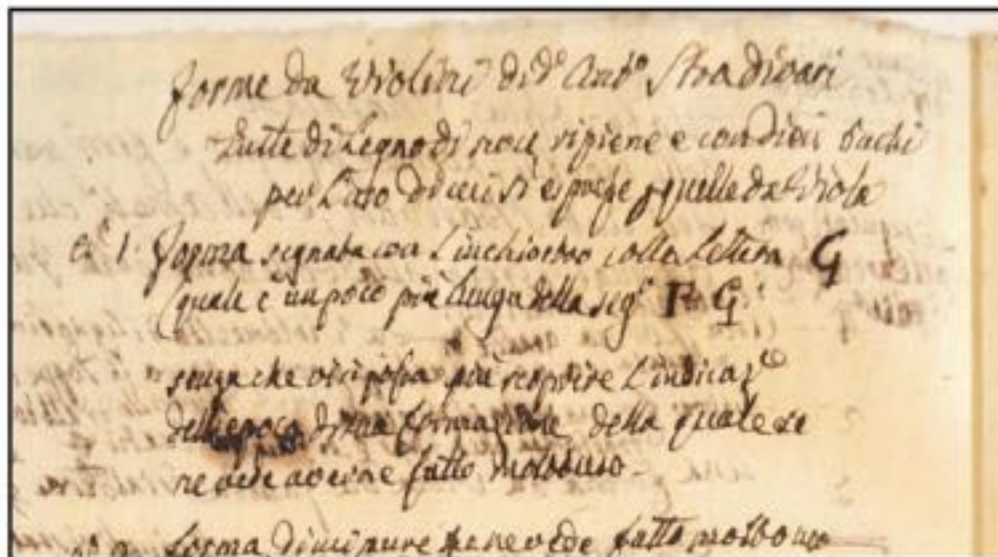 Forme da Violini di d.º Ant.º Stradivari
tutte di Legno di noce ripiene e con dieci bachi
per L'uso di cui si è  quelle da Viola
1. Forma segnata con L'inchiostro colla Lettera G
(quale è un poco più lunga della seg.ᵉ P G.
senza che vi si possa più scoprire L'indicaz.ᵉ
dell'epoca di sua formazione della quale se
ne vede avenne fatto molto uso.
Forma di cui pure se ne vede fatto molto uso